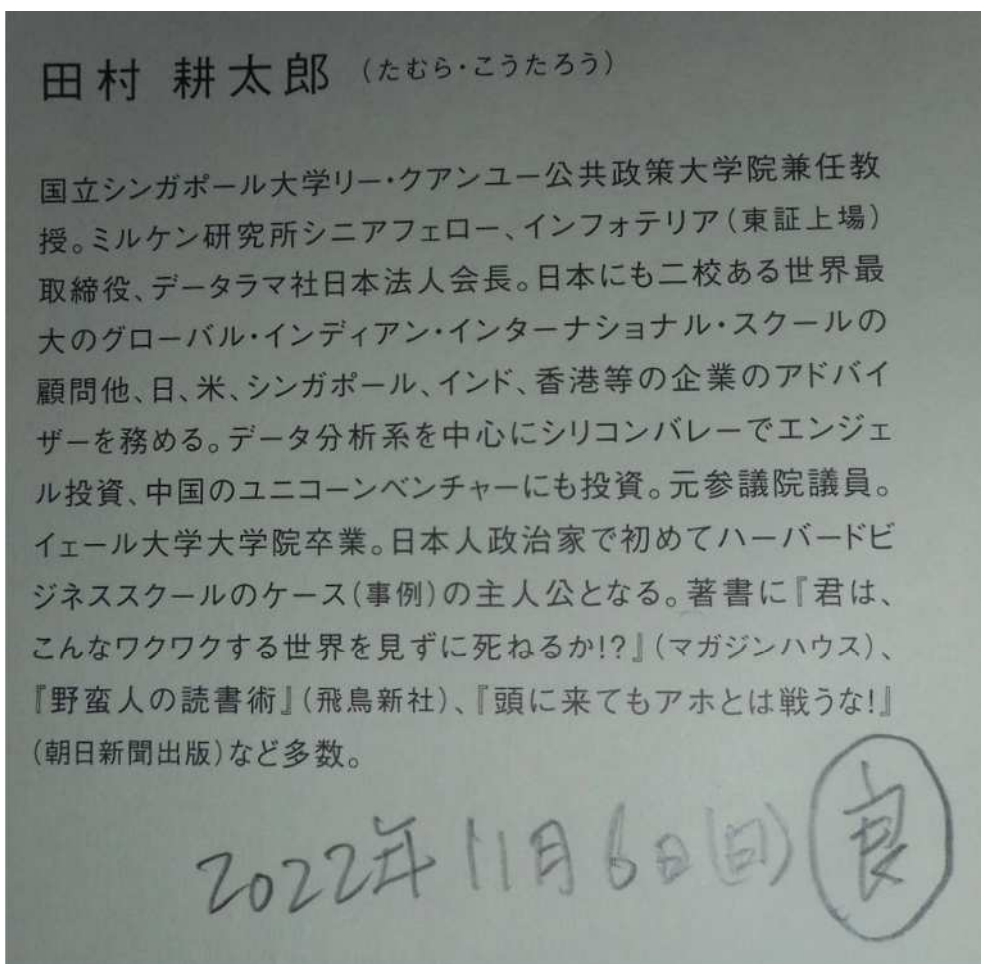 田村 耕太郎 （たむら・こうたろう）
国立シンガポール大学リー・クアンユー公共政策大学院兼任教
授。ミルケン研究所シニアフェロー、インフォテリア（東証上場）
取締役、データラマ社日本法人会長。日本にも二校ある世界最
大のグローバル・インディアン・インターナショナル・スクールの
顧問他、日、米、シンガポール、インド、香港等の企業のアドバイ
ザーを務める。データ分析系を中心にシリコンバレーでエンジェ
ル投資、中国のユニコーンベンチャーにも投資。元参議院議員。
イェール大学大学院卒業。日本人政治家で初めてハーバードビ
ジネススクールのケース（事例）の主人公となる。著書に『君は、
こんなワクワクする世界を見ずに死ねるか!?』（マガジンハウス）、
『野蛮人の読書術』（飛鳥新社）、『頭に来てもアホとは戦うな!』
（朝日新聞出版）など多数。
2022年11月6日(日) 良